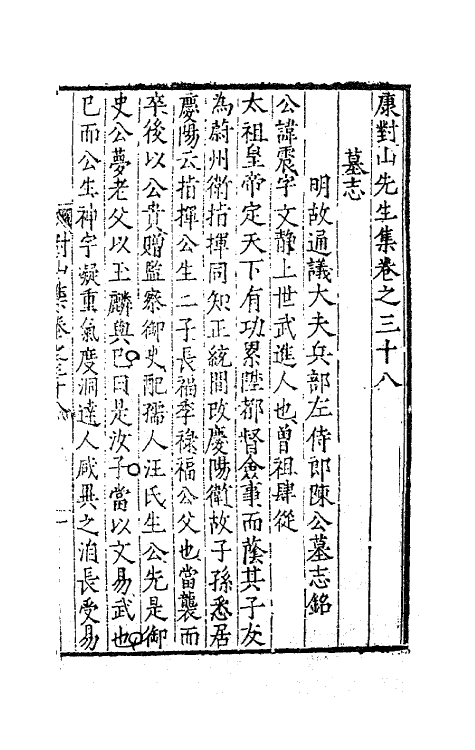 康對山先生集卷之三十八
墓志
明故通議大夫兵部左侍郎陳公墓志銘
公諱震字文静上世武進人也曾祖肆從
太祖皇帝定天下有功累陞都督僉事而蔭其子友
為蔚州衛指揮同知正統間改慶陽衛故子孫悉居
慶陽云指揮公生二子長福季祿福公父也當襲而
卒後以公貴贈監察御史配孺人汪氏生公先是御
史公夢老父以玉麟與巳曰是汝子當以文易武也
巳而公生神宇凝重氣度洞達人咸異之洎長受易
對山集卷之三十八
一